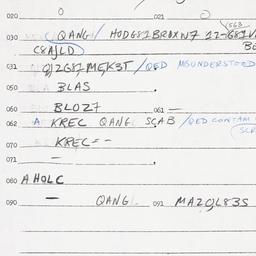 020 021
563
030 QANG / HODG81BROXN7 12-681V
C8AJLD BE
031 QJ2G81,MEK3T / QED MSUNDERSTOOD
050 BLAS
060 BLOZ7 061 —
062 A KREC QANG. SCAB / QED CONTAM
070 KREC=-
071 —
080 AHOLC
090 — QANG 091 MAZOL83S